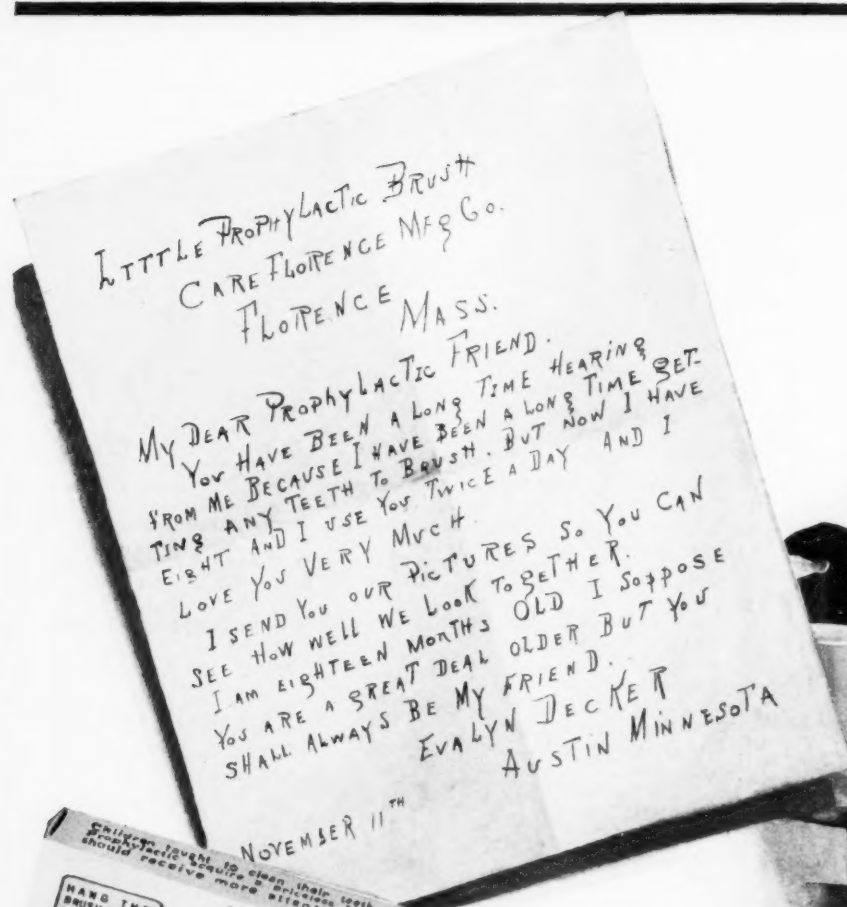 LITTLE PROPHYLACTIC BRUSH
CARE FLORENCE MFG CO.
FLORENCE MASS.
MY DEAR PROPHYLACTIC FRIEND.
YOU HAVE BEEN A LONG TIME HEARING
FROM ME BECAUSE I HAVE BEEN A LONG TIME GET-
TING ANY TEETH TO BRUSH. BUT NOW I HAVE
EIGHT AND I USE YOU TWICE A DAY AND I
LOVE YOU VERY MUCH.
I SEND YOU OUR PICTURES SO YOU CAN
SEE HOW WELL WE LOOK TOGETHER.
I AM EIGHTEEN MONTHS OLD I SOPPOSE
YOU ARE A GREAT DEAL OLDER BUT YOU
SHALL ALWAYS BE MY FRIEND.
EVALYN DECKER
AUSTIN MINNESOTA
NOVEMBER 11TH
Children taught to clean their teeth
Prophylactic acquire a priceless
should receive more
HANG THE
BRUSH